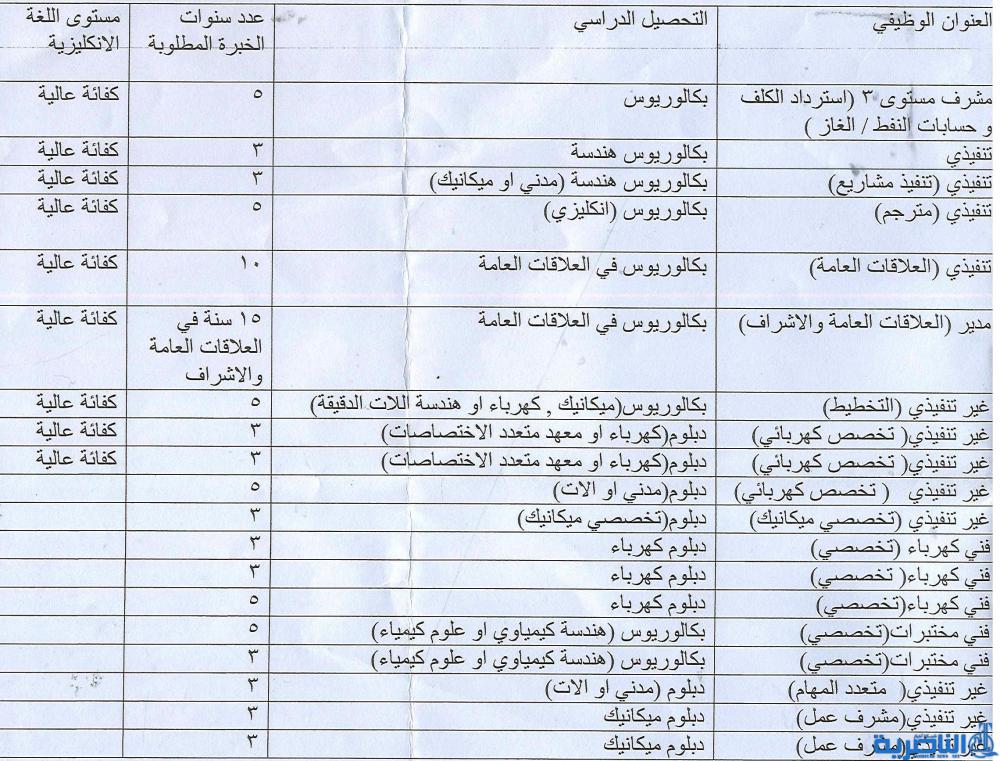 العنوان الوظيفي التحصيل الدراسي عدد سنوات مستوى اللغة
الخبرة المطلوبة الانكليزية
مشرف مستوى ٣ (استرداد الكلف بكالوريوس ٥ كفائة عالية
و حسابات النفط / الغاز )
تنفيذي بكالوريوس هندسة ٣ كفائة عالية
تنفيذي (تنفيذ مشاريع) بكالوريوس هندسة (مدني او ميكانيك) ٣ كفائة عالية
تنفيذي (مترجم) بكالوريوس (انكليزي) ٥ كفائة عالية
تنفيذي (العلاقات العامة) بكالوريوس في العلاقات العامة ١٠ كفائة عالية
مدير (العلاقات العامة والاشراف) بكالوريوس في العلاقات العامة ١٥ سنة في كفائة عالية
العلاقات العامة
والاشراف
غير تنفيذي (التخطيط) بكالوريوس(ميكانيك , كهرباء او هندسة اللات الدقيقة) ٥ كفائة عالية
غير تنفيذي( تخصص كهربائي) دبلوم(كهرباء او معهد متعدد الاختصاصات) ٣ كفائة عالية
غير تنفيذي( تخصص كهربائي) دبلوم(كهرباء او معهد متعدد الاختصاصات) ٣ كفائة عالية
غير تنفيذي ( تخصص كهربائي) دبلوم(مدني او الات) ٥
غير تنفيذي (تخصصي ميكانيك) دبلوم(تخصصي ميكانيك) ٣
فني كهرباء (تخصصي) دبلوم كهرباء ٣
فني كهرباء( تخصصي) دبلوم كهرباء ٣
فني كهرباء(تخصصي) دبلوم كهرباء ٥
فني مختبرات(تخصصي) بكالوريوس (هندسة كيمياوي او علوم كيمياء) ٥
فني مختبرات(تخصصي) بكالوريوس (هندسة كيمياوي او علوم كيمياء) ٣
غير تنفيذي( متعدد المهام) دبلوم (مدني او الات) ٣
غير تنفيذي(مشرف عمل) دبلوم ميكانيك ٣
غير تنفيذي(مشرف عمل) دبلوم ميكانيك ٣
الناصرية